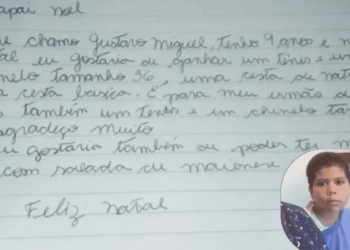 apai noel
e chamo Gustavo Miguel, tenho 9 anos e m
tal eu gostaria de ganhar um tênis e um
nelo tamanho 36, uma cesta de nata
a cesta basica. E para meu irmão de
também um tenes e um chinelo ta
agradeço muito
u gostaria também de poder ter m
com salada de maionese
Feliz natal